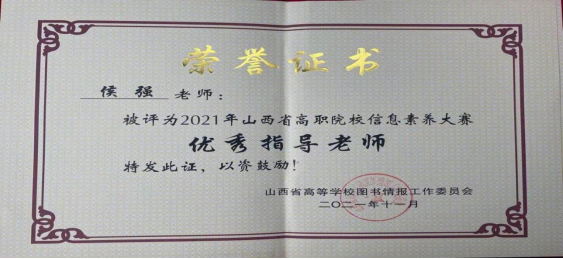 荣誉证书
侯强 老师：
被评为2021年山西省高职院校信息素养大赛
优秀指导老师
特发此证，以资鼓励！
山西省高等学校图书情报工作委员会
二〇二一年十一月